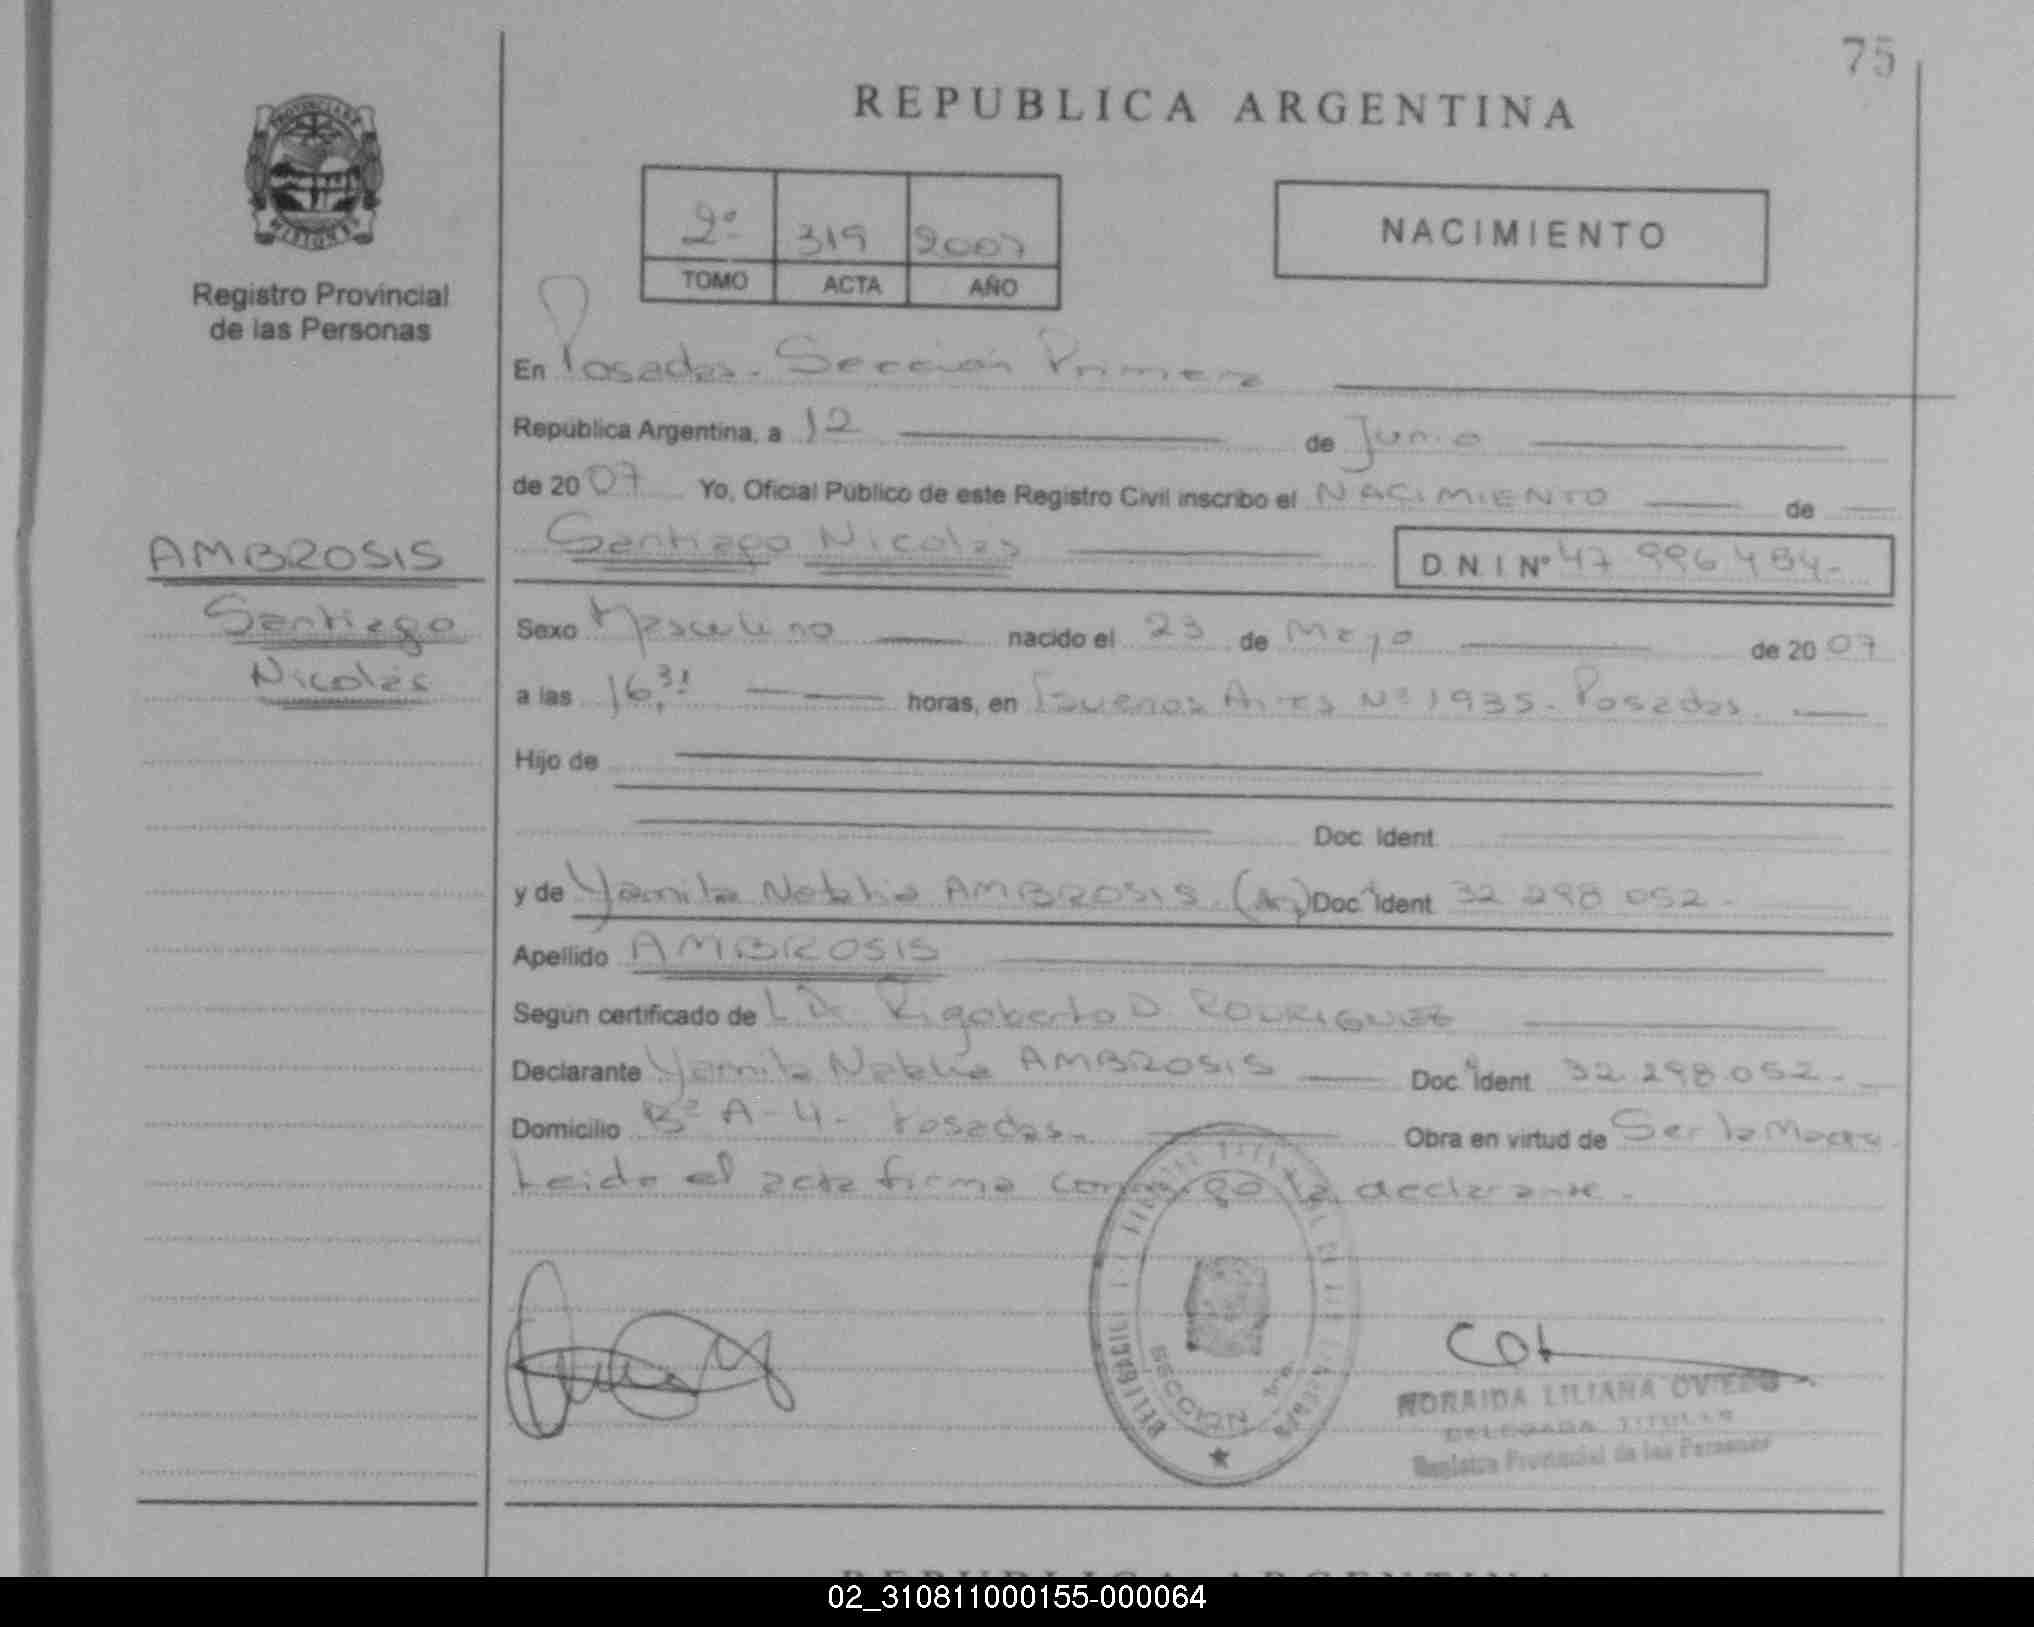 75
REPUBLICA ARGENTINA
PROVINCIA DE
MISIONES
Registro Provincial
de las Personas
2º 319 2007
TOMO ACTA AÑO
NACIMIENTO
En Posadas. Sección Primera
República Argentina, a 12 de Junio
de 2007 Yo, Oficial Público de este Registro Civil inscribo el NACIMIENTO de
Santiago Nicolás D.N.I Nº 47 996 484.-
AMBROSIS
Santiago
Nicolás
Sexo Masculino nacido el 23 de Mayo de 2007
a las 16,31 horas, en Buenos Aires Nº 1935. Posadas.
Hijo de
Doc. Ident.
y de Yamila Natalia AMBROSIS. (Ar.) Doc. Ident. 32 298 052.-
Apellido AMBROSIS
Según certificado de L Dr Rigoberto D. RODRIGUEZ
Declarante Yamila Natalia AMBROSIS Doc. Ident. 32.298.052.-
Domicilio Bº A-4- Posadas.- Obra en virtud de Ser la Madre.
Leida el acta firma conmigo la declarante.
SECCION 1ra.
NORAIDA LILIANA OVIEDO
DELEGADA TITULAR
Registro Provincial de las Personas
REPUBLICA ARGENTINA
02_310811000155-000064